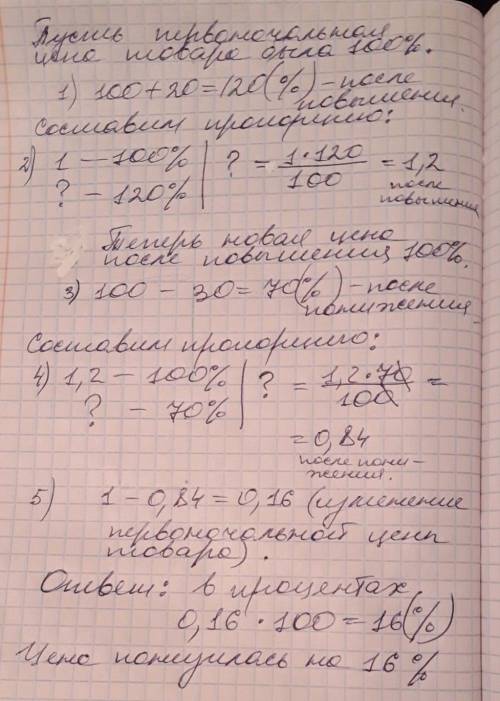 Пусть первоначальная
цена товара была 100%.
1) 100+20=120(%) – после
повышения.
Составим пропорцию:
2) 1 – 100% | ? = 1·120/100 = 1,2
? – 120% после
повышения
Теперь новая цена
после повышения 100%.
3) 100 – 30 = 70(%) – после
понижения.
Составим пропорцию:
4) 1,2 – 100% | ? = 1,2·70/100 =
? – 70%
= 0,84
после пони-
жения.
5) 1 – 0,84 = 0,16 (изменение
первоначальной цены
товара).
Ответ: в процентах
0,16 · 100 = 16(%)
Цена понизилась на 16%